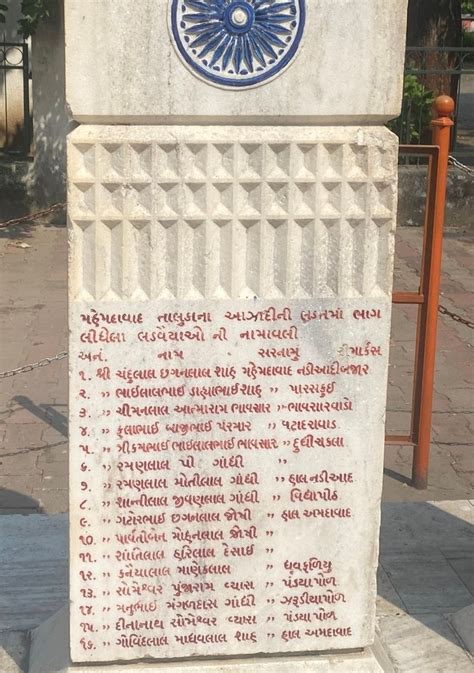 મહેમદાવાદ તાલુકાના આઝાદીની લડતમાં ભાગ
લીધેલા લડવૈયાઓ ની નામાવલી
અનં. નામ સરનામુ રીમાર્કસ
૧. શ્રી ચંદુલાલ છગનલાલ શાહ મહેમદાવાદ નડીઆદીબજાર
૨ ,, ભાઈલાલભાઈ ડાહ્યાભાઈ શાહ ,, પારસકુઈ
૩ ,, ચીમનલાલ આત્મારામ ભાવસાર ,, ભાવસારવાડો
૪ ,, ફુલાભાઈ બાજીભાઈ પરમાર ,, પટારાવાડો
૫ ,, ત્રીકમભાઈ ભાઈલાલભાઈ ભાવસાર ,, દુધીચકલા
૬ ,, રમણલાલ પી ગાંધી ,,
૭ ,, રમણલાલ મોતીલાલ ગાંધી ,, હાલ નડીઆદ
૮ ,, શાન્તીલાલ જીવણલાલ ગાંધી ,, વિદ્યાપીઠ
૯ ,, ગટોરભાઈ છગનલાલ જોષી ,, હાલ અમદાવાદ
૧૦ ,, પાર્વતીબેન મોહનલાલ જોષી ,,
૧૧ ,, શાંતિલાલ હરિલાલ દેસાઈ ,,
૧૨ ,, કનૈયાલાલ માણેકલાલ ધ્રુવફળિયુ
૧૩ ,, સોમેશ્વર પુંજારામ વ્યાસ ,, પંડયાપોળ
૧૪ ,, મનુભાઈ મંગળદાસ ગાંધી ,, ઝરૂડીયાપોળ
૧૫ ,, દીનાનાથ સોમેશ્વર વ્યાસ ,, પંડયા પોળ
૧૬ ,, ગોવિંદલાલ માધવલાલ શાહ ,, હાલ અમદાવાદ